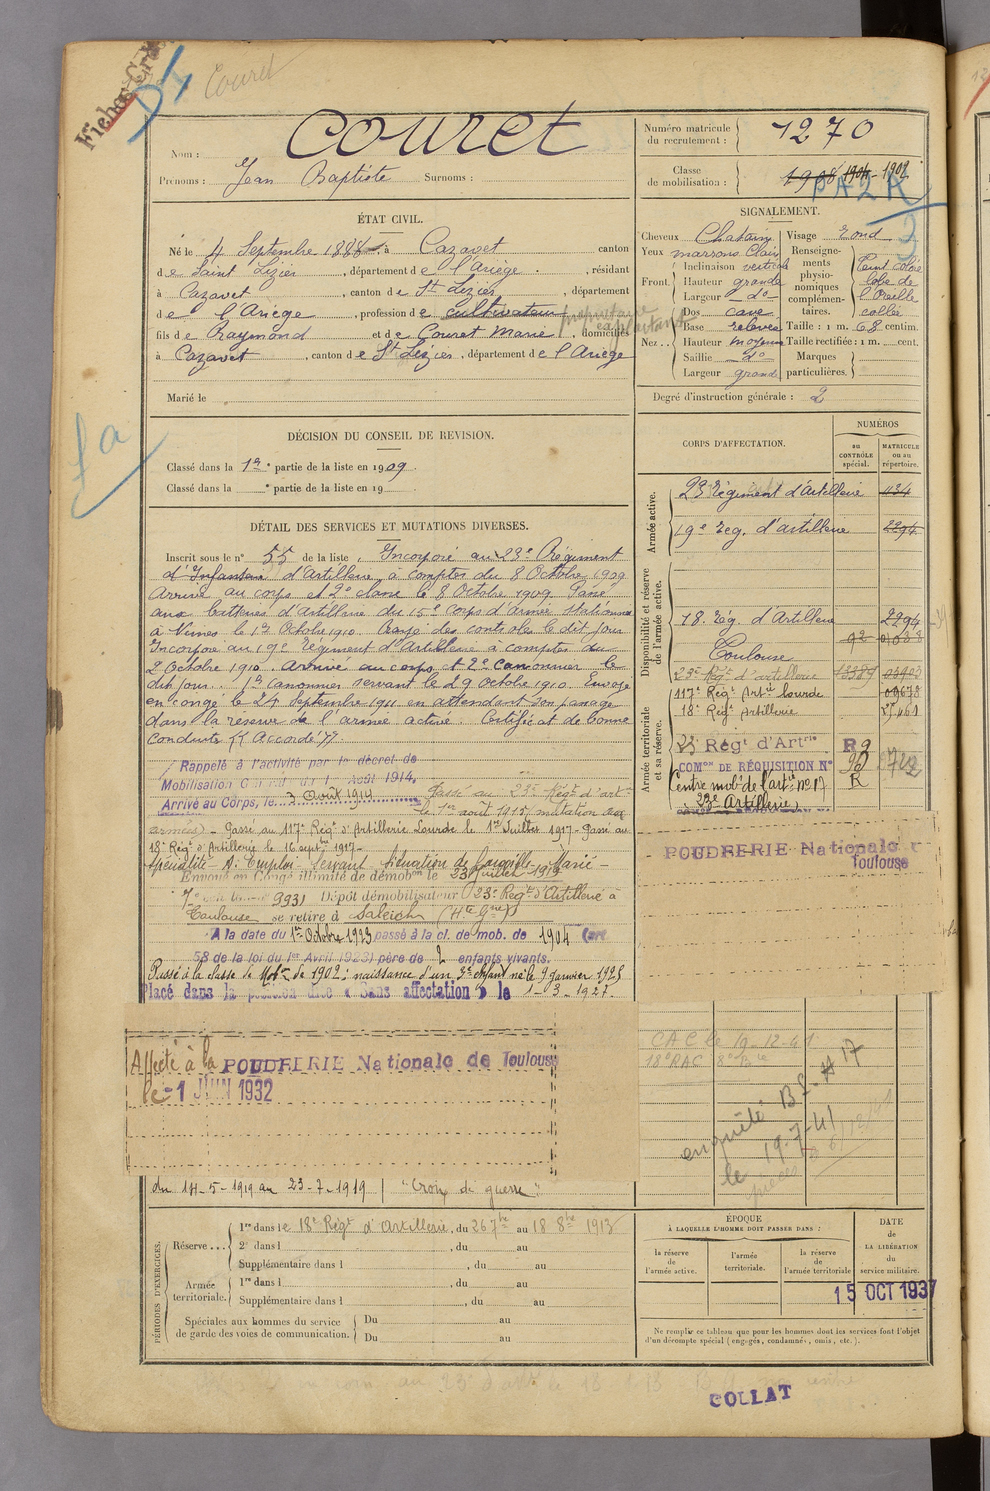 Couret
Nom : COURET
Prénoms : Jean Baptiste Surnoms :
Numéro matricule du recrutement : 1270
Classe de mobilisation : 1908 1904 - 1902
PA2R
ÉTAT CIVIL.
Né le 4 Septembre 1888, à Cazavet canton
de Saint Lizier, département de l'Ariège, résidant
à Cazavet, canton de St Lizier, département
de l'Ariège, profession de cultivateur propriétaire exploitant
fils de Raymond et de Couret Marie, domiciliés
à Cazavet, canton de St Lizier, département de l'Ariège
Marié le
SIGNALEMENT.
Cheveux Chatain
Yeux marrons Clair
Front. Inclinaison verticale
Hauteur grande
Largeur do
Nez.. Dos cave
Base relevée
Hauteur moyenne
Saillie do
Largeur grand
Visage rond
Renseignements physionomiques complémentaires. Teint coloré lobe de l'Oreille collée
Taille : 1 m. 68 centim.
Taille rectifiée : 1 m. cent.
Marques particulières.
Degré d'instruction générale : 2
DÉCISION DU CONSEIL DE REVISION.
Classé dans la 1re partie de la liste en 1909.
Classé dans la e partie de la liste en 19
DÉTAIL DES SERVICES ET MUTATIONS DIVERSES.
Inscrit sous le n° 55 de la liste. Incorporé au 23e Régiment
d'Infanterie d'Artillerie à compter du 8 Octobre 1909
Arrivé au corps et 2e classe le 8 Octobre 1909. Passé
aux batteries d'Artillerie du 15e Corps d'Armée Stationnées
à Nimes le 1er Octobre 1910. Rayé des controles le dit jour
Incorporé au 19e Régiment d'Artillerie à compter du
2 Octobre 1910. Arrivé au corps et 2e Canonnier le
dit jour. 1er Canonnier servant le 29 Octobre 1910. Envoyé
en congé le 24 Septembre 1911 en attendant son passage
dans la réserve de l'armée active. Certificat de bonne
conduite "Accordé".
Rappelé à l'activité par le décret de
Mobilisation Générale du 1er Août 1914.
Arrivé au Corps, le 3 Août 1914
Passé au 23e Régt d'art
le 1er août 1915 (mutation aux
armées) - Passé au 117e Régt d'Artillerie Lourde le 1er Juillet 1917 - Passé au
18e Régt d'Artillerie le 16 septbre 1917 -
Spécialité - A. Emploi - Servant Situation de famille - Marié -
Envoyé en Congé illimité de démobon le 23 Juillet 1919
9931 Dépôt démobilisateur 23e Régt d'Artillerie à
Toulouse se retire à Saleich (Hte Gne)
A la date du 1er Octobre 1923 passé à la cl. de mob. de 1904 (art
58 de la loi du 1er Avril 1923) père de 2 enfants vivants.
Passé à la classe de Mobon de 1902 : naissance d'un 3e enfant né le 9 janvier 1925
Placé dans la position dite « Sans affectation » le 1-3-1927.
Affecté à la POUDRERIE Nationale de Toulouse
le -1 JUIN 1932
du 14-5-1919 au 23-7-1919 / "Croix de guerre"
CORPS D'AFFECTATION.
NUMÉROS
au CONTRÔLE spécial.
MATRICULE ou au répertoire.
Armée active.
23 Régiment d'Artillerie 1134
19e Rég. d'artillerie 2294
Disponibilité et réserve de l'armée active.
18. Rég. d'Artillerie 2294
Toulouse
23e Régt d'artillerie 13389
117e Régt Artie lourde
18e Régt Artillerie
Armée territoriale et sa réserve.
23 Régt d'Artrie
COMon DE RÉQUISITION N°
Centre mobr de l'artie n° 17
23e Artillerie
R
POUDRERIE Nationale
Toulouse
CAC le 19-12-61
18e RAC 8e Bie
enquêté BS. # 17
le 19-7-41
PÉRIODES D'EXERCICES.
Réserve... 1re dans le 18e Régt d'Artillerie, du 26 7bre au 18 8bre 1913
2e dans l , du au
Supplémentaire dans l , du au
Armée territoriale. 1re dans l , du au
Supplémentaire dans l , du au
Spéciales aux hommes du service de garde des voies de communication. Du au
Du au
ÉPOQUE
À LAQUELLE L'HOMME DOIT PASSER DANS :
la réserve de l'armée active.
l'armée territoriale.
la réserve de l'armée territoriale
DATE de LA LIBÉRATION du service militaire.
15 OCT 1937
Ne remplir ce tableau que pour les hommes dont les services font l'objet
d'un décompte spécial (engagés, condamnés, omis, etc.).
COLLAT